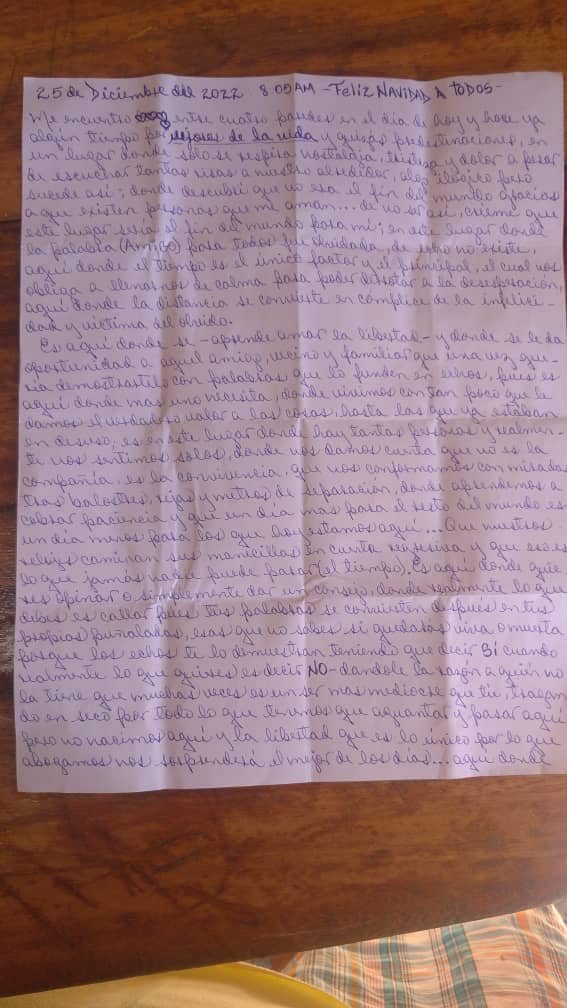 25 de Diciembre del 2022 8:05 AM - Feliz NAVIDAD A TODOS -
Me encuentro entre cuatro paredes en el dia de hoy y hace ya
algún tiempo por de la vida y quizas predestinaciones, en
un lugar donde solo se respira nostalgia, tristeza y dolor a pesar
de escuchar tantas risas a nuestro alrededor, algo ilogico pero
sucede asi; donde descubri que no era el fin del mundo gracias
a que existen personas que me aman... de no ser asi, creeme que
este lugar seria el fin del mundo para mi; en este lugar donde
la palabra (Amigo) para todos fue olvidada, de echo no existe,
aqui donde el tiempo es el único factor y el principal, el cual nos
obliga a llenarnos de calma para poder derrotar a la desesperación,
aqui donde la distancia se convierte en cómplice de la infelici-
dad y victima del olvido.
Es aqui donde se - aprende amar la libertad - y donde se le da
oportunidad a aquel amigo, vecino y familiar que una vez que-
ria demostrartelo con palabras que lo funden en echos, pues es
aqui donde mas uno necesita, donde vivimos con tan poco que le
damos el verdadero valor a las cosas, hasta las que ya estaban
en desuso, es en este lugar donde hay tantas personas y realmen-
te nos sentimos solos, donde nos damos cuenta que no es la
compañia, es la convivencia, que nos conformamos con miradas
tras balostres, rejas y metros de separación, donde aprendemos a
cobrar paciencia y que un dia mas para el resto del mundo es
un dia menos para los que hoy estamos aqui... Que nuestros
relojes caminan sus manecillas en cuenta regresiva y que eso es
lo que jamás nadie puede parar (el tiempo). Es aqui donde quie-
res opinar o simplemente dar un consejo, donde realmente lo que
debes es callar pues tus palabras se convierten después en tus
propias puñaladas, esas que no sabes si quedaras viva o muerta
porque los echos te lo demuestran teniendo que decir Sí cuando
realmente lo que quieres es decir NO - dandole la razón a quien no
la tiene que muchas veces es un ser mas mediocre que tu, tragan-
do en seco por todo lo que tenemos que aguantar y pasar aqui
pero no nacimos aqui y la libertad que es lo único por lo que
abogamos nos sorprenderá el mejor de los dias... aqui donde